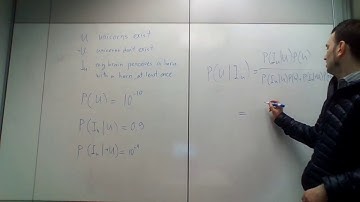 U unicorns exist
¬U unicorns don't exist
Iₕ my brain perceives a horse with a horn, at least once
P(U) = 10⁻¹⁰
P(Iₕ|U) = 0.9
P(Iₕ|¬U) =
P(U|Iₕ) = P(Iₕ|U)P(U)
P(Iₕ|U)P(U)+P(Iₕ|¬U)
=